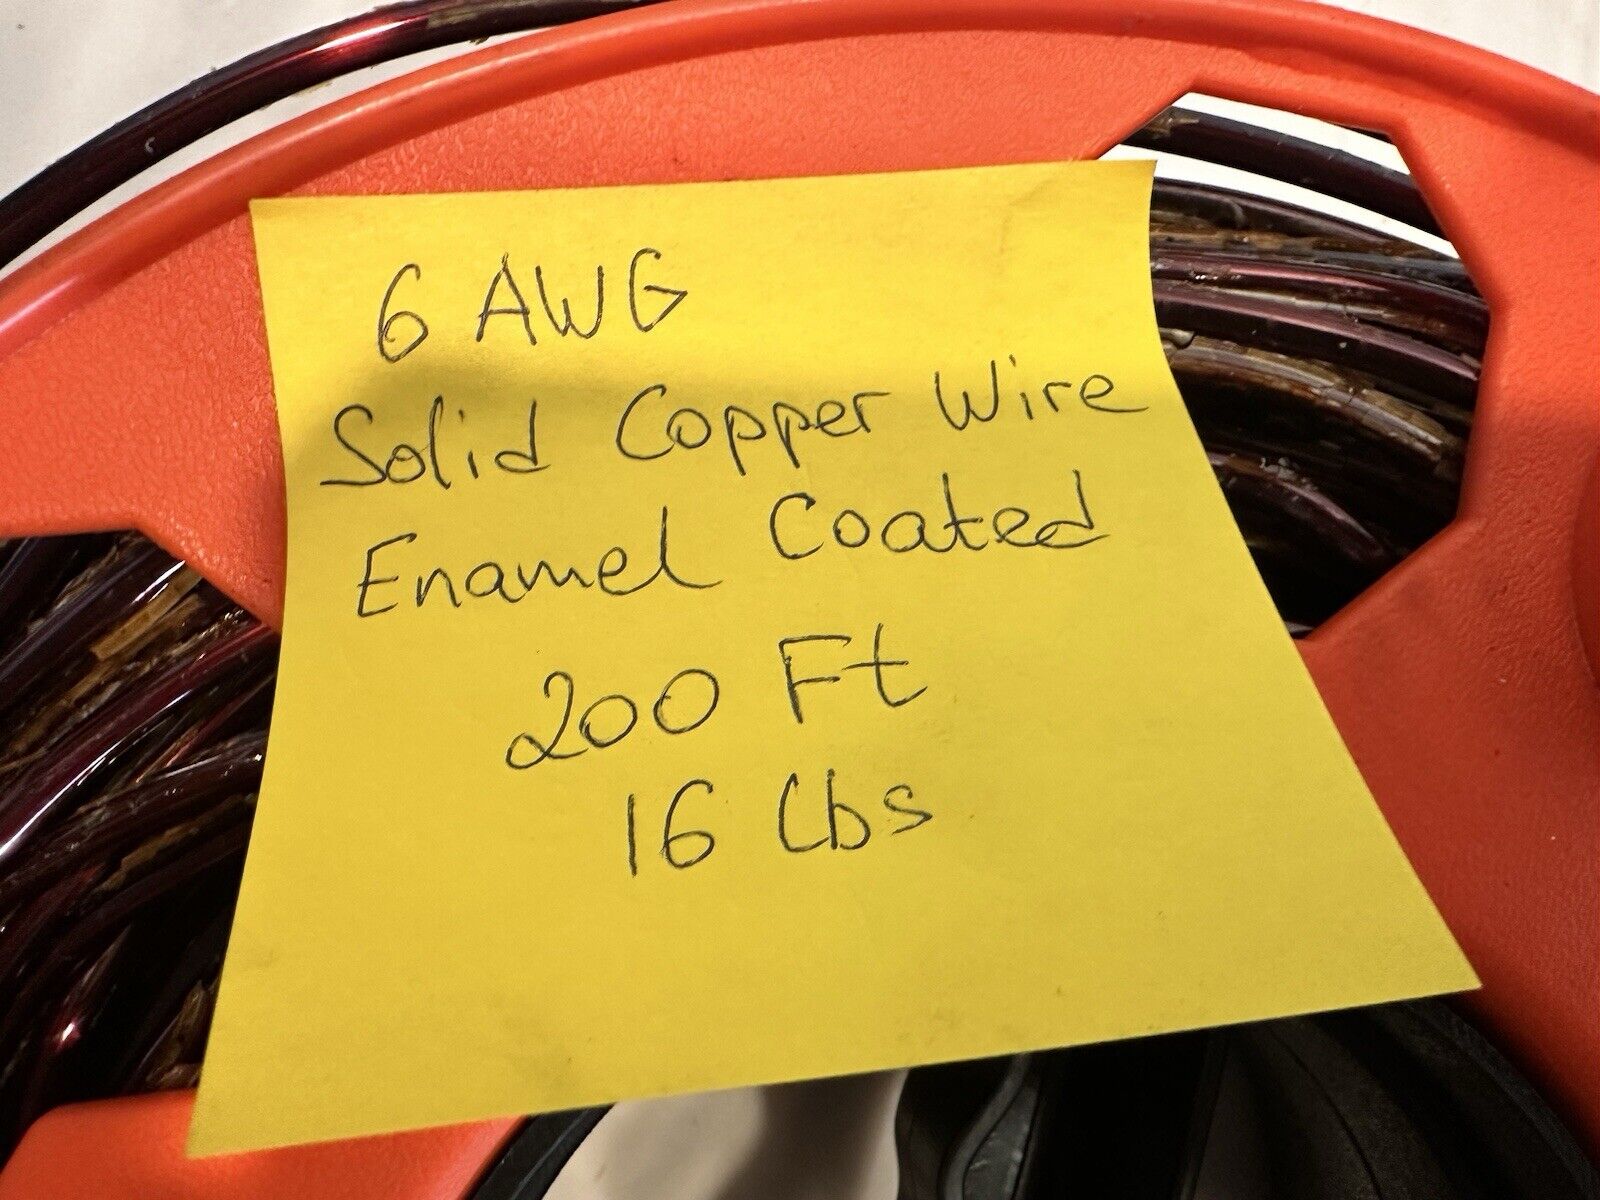 6 AWG
Solid Copper Wire
Enamel Coated
200 Ft
16 Lbs